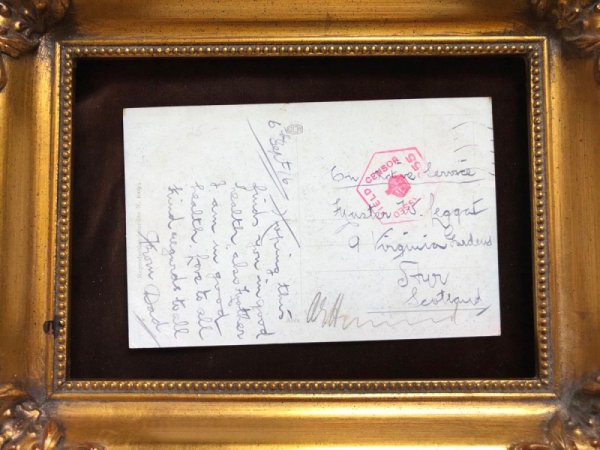 6th Sept/16
Hoping this
finds you in good
health also brother
I am in good
health love to all
kind regards to all
From Dad
On Active Service
W. Leggat
9 Virginia Gardens
Scotland
FIELD